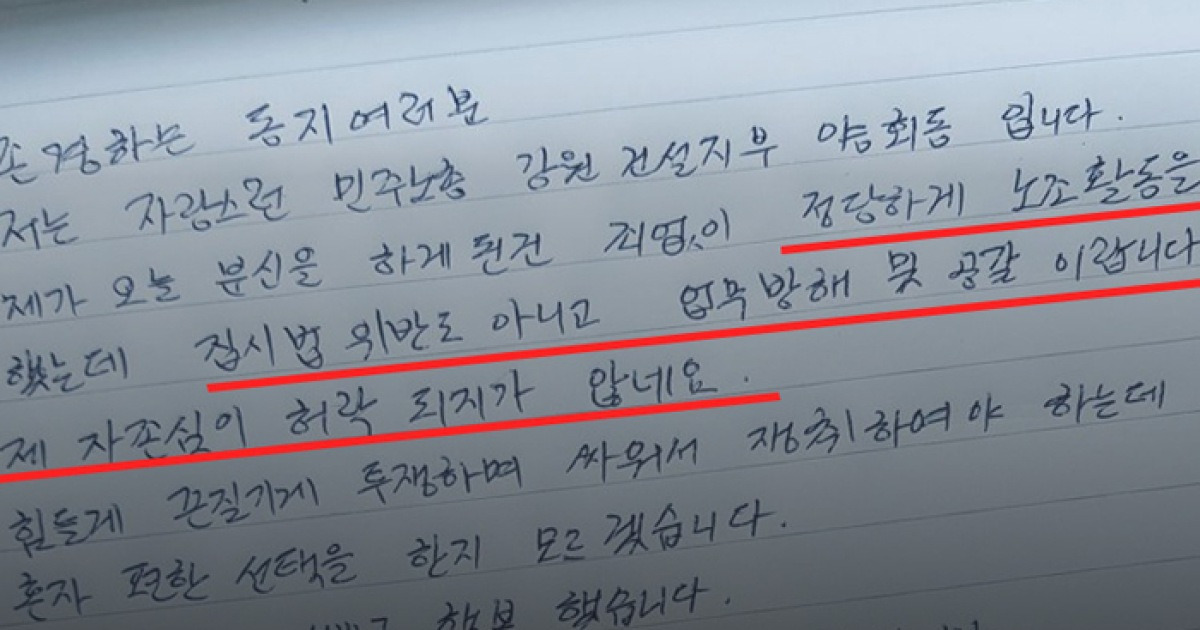 존경하는 동지여러분
저는 자랑스런 민주노총 강원건설지부 양회동 입니다.
제가 오늘 분신을 하게 된건 죄없이 정당하게 노조활동을
했는데 집시법 위반도 아니고 업무방해 및 공갈 이랍니다
제 자존심이 허락 되지가 않네요.
힘들게 끈질기게 투쟁하며 싸워서 쟁취하여야 하는데
혼자 편한 선택을 한지 모르겠습니다.
행복 했습니다.